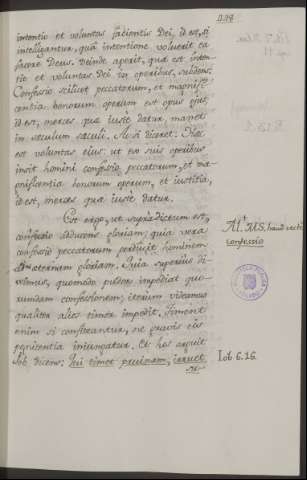 intentio et voluntas facientis Dei, id est, si
intelligantur, qua intentione voluerit ea
facere Deus. Deinde aperit, quae est inten-
tio et voluntas Dei in operibus, subdens:
Confessio scilicet peccatorum, et magnifi-
centia bonorum operum est opus ejus,
id est, merces quae iuste datur, manet
in saeculum saeculi. Ac si diceret: Haec
est voluntas eius, ut pro suis operibus
insit homini confessio peccatorum, et ma-
gnificentia bonorum operum, et iustitia,
id est, merces quae iuste datur.
Est ergo, ut supra dictum est,
confessio adducens gloriam, quia vera
confessio peccatorum perducit hominem
ad aeternam gloriam. Quia superius di-
ximus, quomodo pudor impediat quo-
rundam confessionem; iterum videamus
qualiter alios timor impedit. Timent
enim si confiteantur, ne gravis eis
poenitentia iniungatur. Et hos arguit
Iob dicens: Qui timet pruinam, irruet
Al. MS. haud recte
confessio
Iob 6.16.